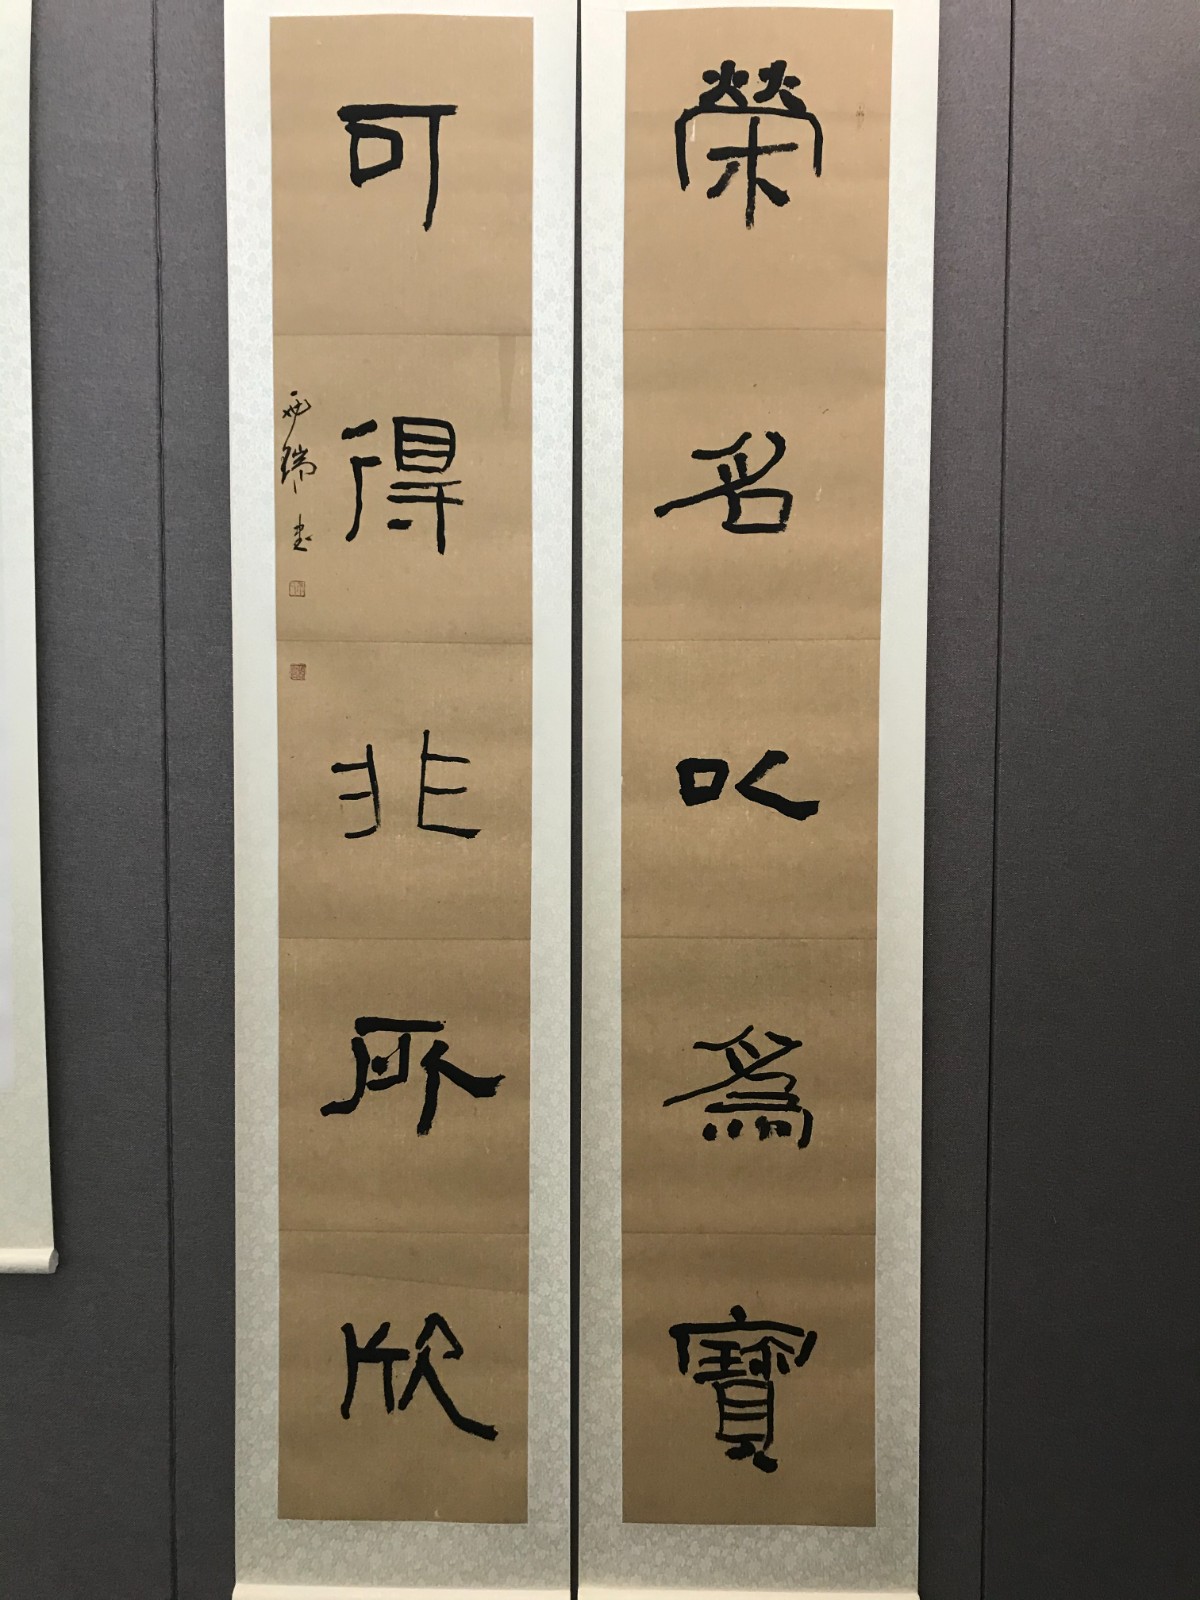 榮名以為寶
可得非所欣
瑞書